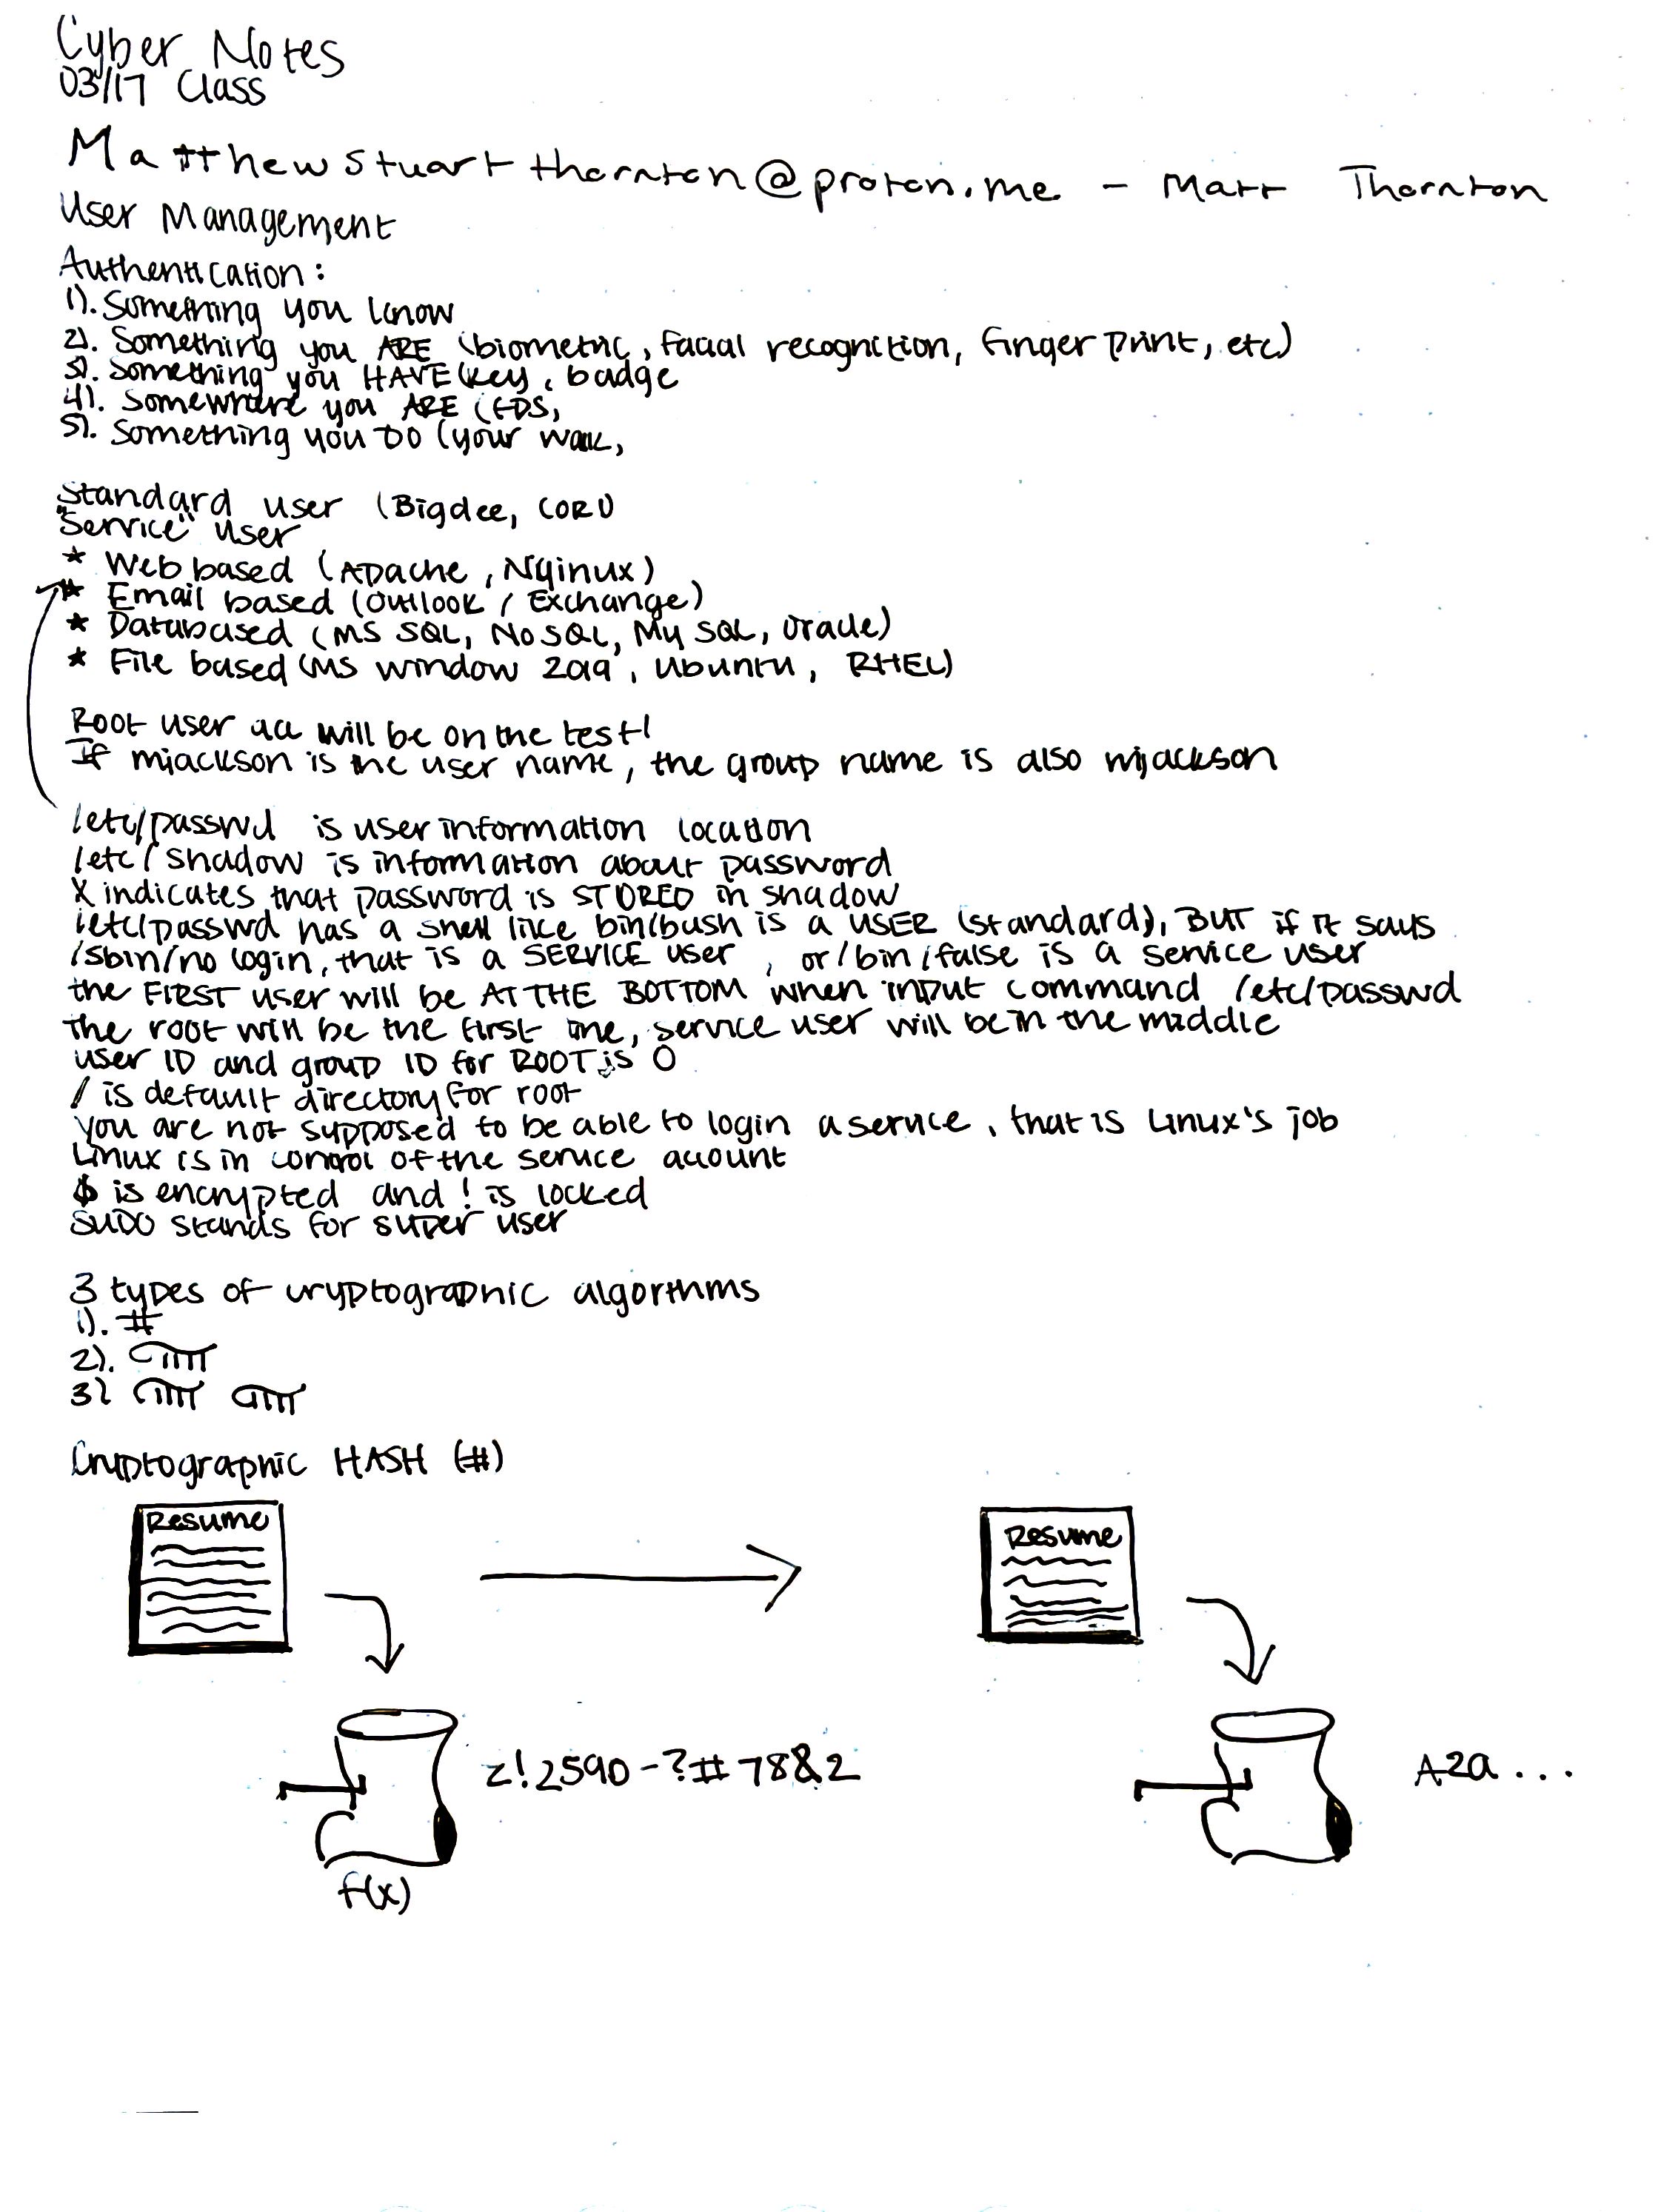 Cyber Notes
03/17 Class
Matthewstuartthornton@proton.me - Matt Thornton
User Management
Authentication:
1). Something you know
2). Something you ARE (biometric, facial recognition, finger print, etc)
3). Something you HAVE (key, badge
4). Somewhere you ARE (
5). Something you DO (your walk,
Standard user (Bigdee, CORI)
"Service" user
* Web based (Apache, Nginux)
* Email based (Outlook / Exchange)
* Databased (MS SQL, NoSQL, My SQL, Oracle)
* File based (MS window 2019, Ubuntu, RHEL)
Root user acc will be on the test!
If mjackson is the user name, the group name is also mjackson
/etc/passwd is user information location
/etc/shadow is information about password
X indicates that password is STORED in shadow
/etc/passwd has a shell like bin/bush is a USER (standard), BUT if it says
/sbin/no login, that is a SERVICE user, or /bin/false is a service user
the FIRST user will be AT THE BOTTOM when input command /etc/passwd
The root will be the first one, service user will be in the middle
user ID and group ID for ROOT is 0
/ is default directory for root
you are not supposed to be able to login a service, that is Linux's job
Linux is in control of the service account
$ is encrypted and ! is locked
SUDO stands for super user
3 types of cryptographic algorithms
1). #
2).
3)
Cryptographic HASH (#)
Resume
Resume
z!2590-?#78&2
A2a...
f(x)